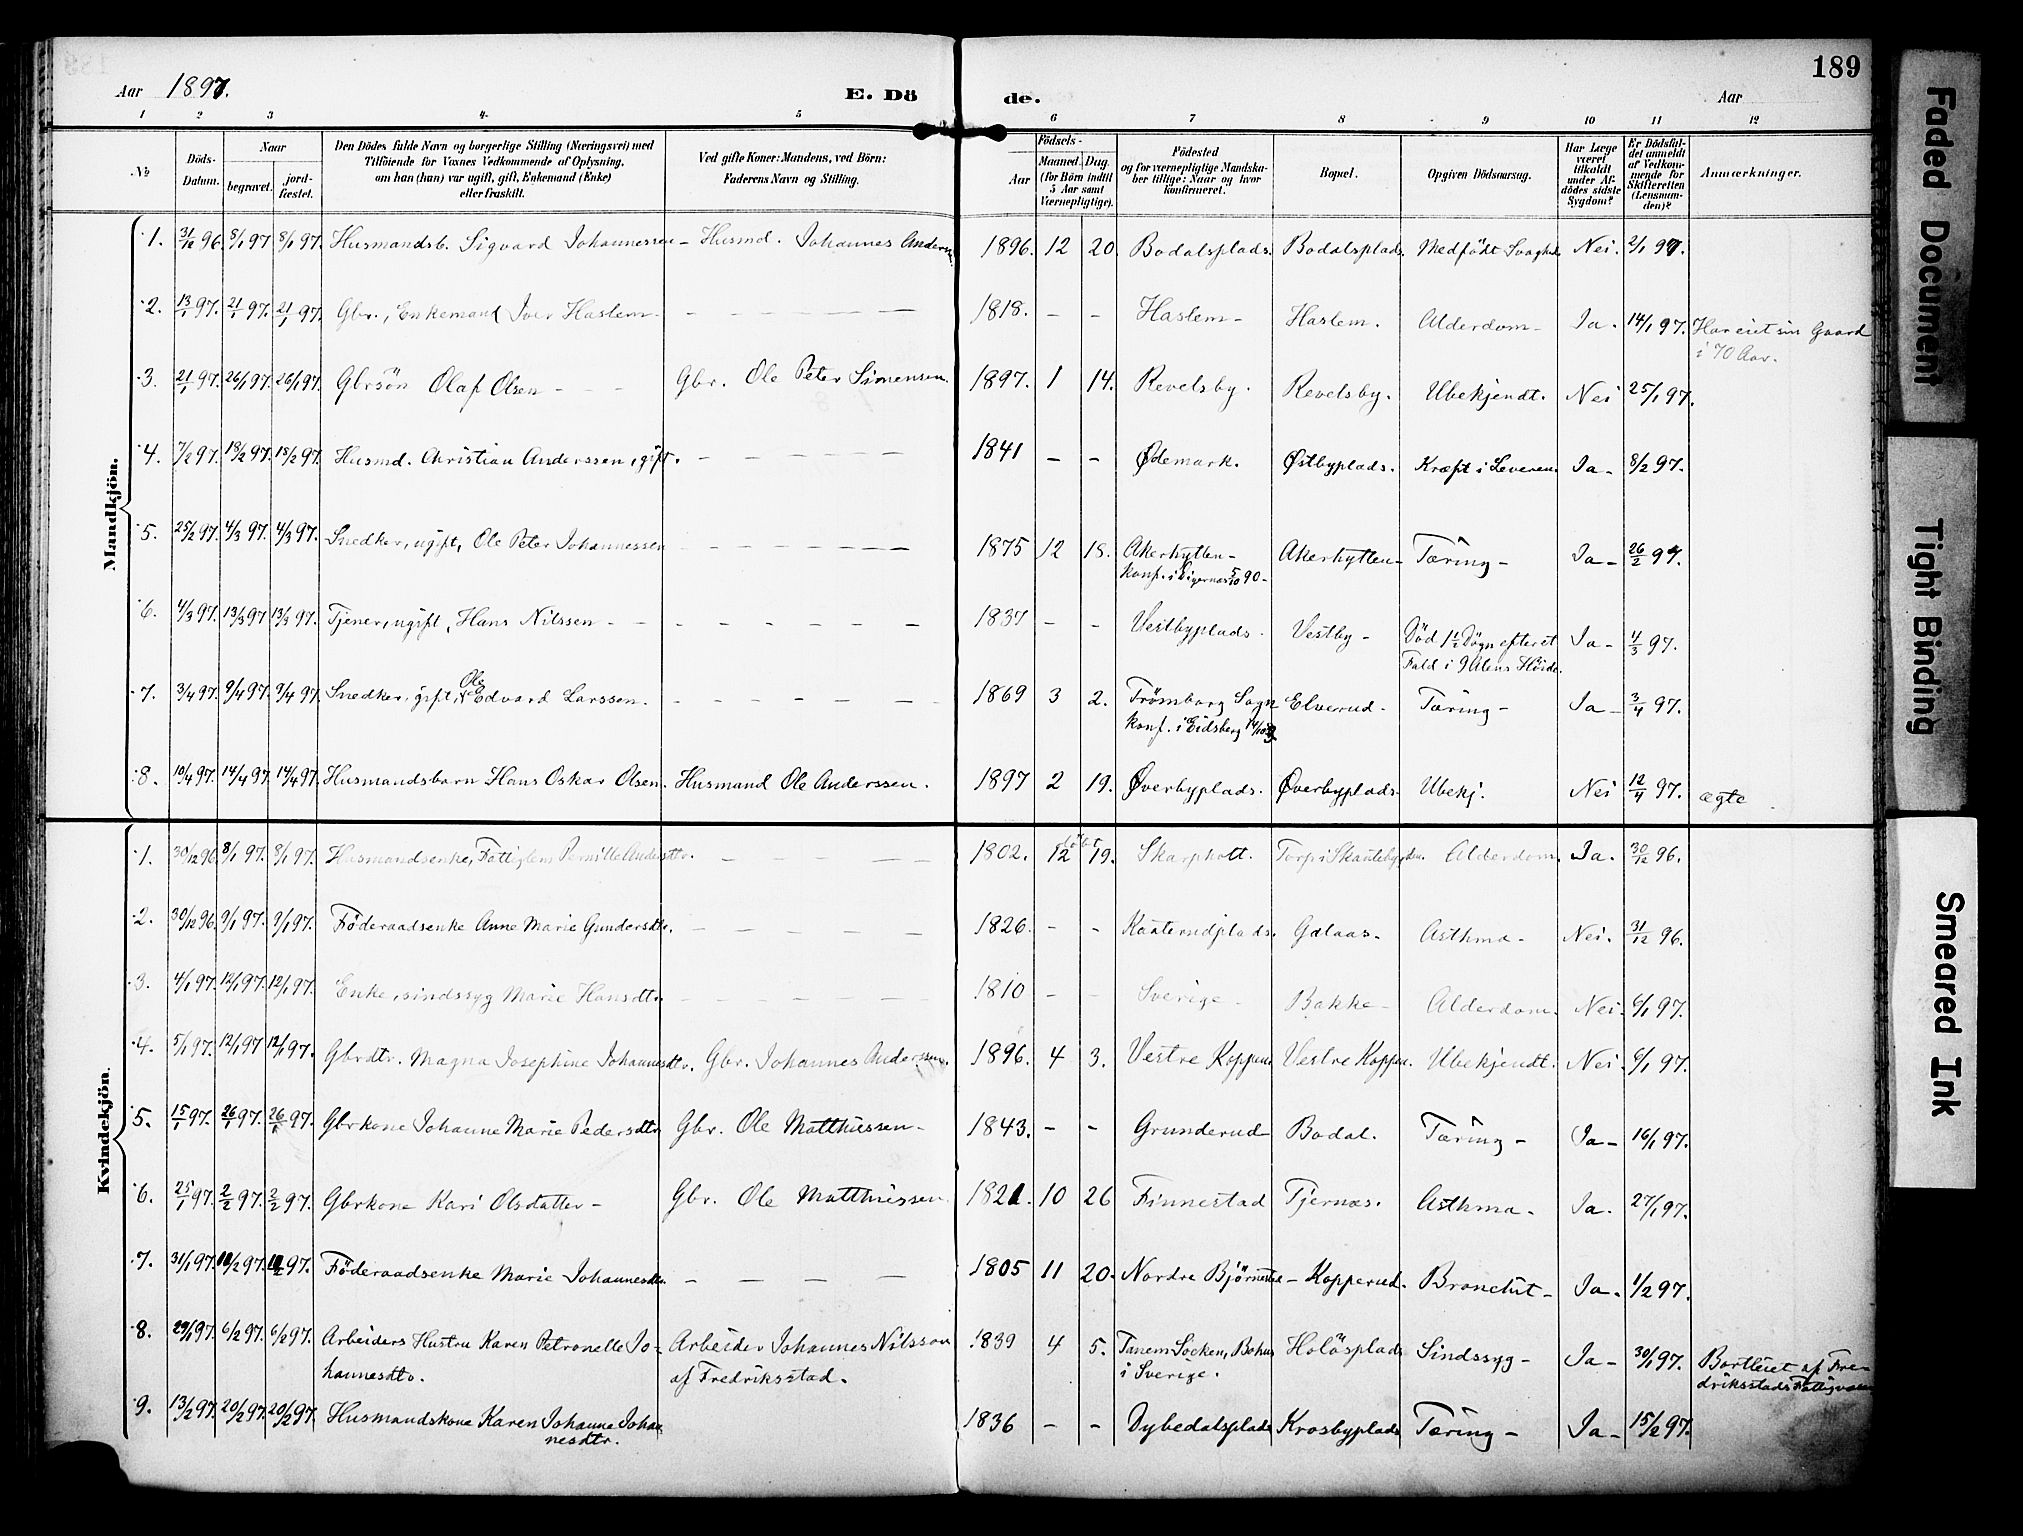 189
Aar 1897. E. Döde. Aar
1 2 3 4. 5 6 7 8 9 10 11 12
№ Döds-Datum. Naar begravet. jord-fæstet. Den Dödes fulde Navn og borgerlige Stilling (Næringsvei) med Tilföiende for Voxnes Vedkommende af Oplysning, om han (hun) var ugift, gift, Enkemand (Enke) eller fraskilt. Ved gifte Koner: Mandens, ved Börn: Faderens Navn og Stilling. Födsels- Aar Maaned. Dag. (for Börn indtil 5 Aar samt Værnepligtige). Födested og for værnepligtige Mandska-ber tillige: Naar og hvor konfirmeret. Bopæl. Opgiven Dödsaarsag. Har Læge været tilkaldt under Af-dödes sidste Sygdom? Er Dödsfal-det anmeldt af Vedkom-mende for Skifteretten (Lensman-den)? Anmærkninger.
Mandkjön.
1. 31/12 96 8/1 97 8/1 97. Husmandsb. Sigvard Johannessen - Husmd. Johannes Anders 1896. 12 20. Bodalsplads. Bodalsplads. Medfödt Svaghed. Nei. 2/1 97.
2. 13/1 97. 21/1 97. 21/1 97. Gbr., Enkemand Iver Haslem - 1818. - - Haslem - Haslem. Alderdom - Ja. 14/1 97. Har eiet sin Gaard
i 70 Aar.
3. 21/1 97. 26/1 97. 26/1 97. Gbrsön Olaf Olsen - - - Gbr. Ole Peter Simensen. 1897. 1 14. Revelsby. Revelsby. Ubekjendt. Nei 25/1 97.
4. 7/2 97. 18/2 97. 18/2 97. Husmd. Christian Anderssen, gift. - - - - 1841 - - Ødemark. Østbyplads. Kræft i Leveren. Ja - 8/2 97.
5. 25/2 97. 4/3 97. 4/3 97. Snedker, ugift, Ole Peter Johannessen - - - - 1875 12 18. Akerhytten - Akerhytten - Tæring - Ja - 26/2 97.
konf. i 5/10 90 -
6. 4/3 97. 13/3 97 13/3 97. Tjener, ugift, Hans Nilssen - - - - - - 1837 - - Vestbyplads. Vestby - Död 1½ Dögn efter et Ja - 4/3 97.
Fald i 9 Alens Höide.
7. 3/4 97. 9/4 97. 9/4 97. Snedker, gift, Ole Edvard Larssen. - - - - 1869 3 2. Trömborg Sogn Elverud - Tæring - Ja - 3/4 97.
konf. i Eidsberg
8. 10/4 97. 14/4 97. 14/4 97. Husmandsbarn Hans Oskar Olsen. Husmand Ole Anderssen. 1897 2 19. Øverbyplads. Øverbyplads. Ubekj. Nei 12/4 97. ægte
Kvindekjön.
1. 30/12 96. 8/1 97. 8/1 97. Husmandsenke, Fattiglem Pernille Andersdtr. - - - - 1802. 12 döbt 19. Skarpholt. Torp i Alderdom. Ja. 30/12 96.
2. 30/12 96. 9/1 97. 9/1 97. Föderaadsenke Anne Marie Gundersdtr. - - - - 1826. - - Kaaterudplads. Galaas - Asthma - Nei. 31/12 96.
3. 4/1 97. 12/1 97. 12/1 97. Enke, sindssyg Marie Hansdtr. - - - - 1810 - - Sverige - Bakke - Alderdom. Nei. 6/1 97.
4. 5/1 97. 12/1 97 12/1 97. Gbrdtr. Magna Josephine Johannesdtr. Gbr. Johannes Anderssen. 1896. 4 3. Vestre Koppen Vestre Koppen. Ubekjendt. Nei. 6/1 97.
5. 15/1 97. 26/1 97. 26/1 97. Gbrkone Johanne Marie Pedersdtr. Gbr. Ole Matthissen - 1843. - - Grunderud Bodal. Tæring - Ja - 16/1 97.
6. 25/1 97. 2/2 97. 2/2 97. Gbrkone Kari Olsdatter - Gbr. Ole Matthissen 1821. 10 26 Finnestad Tjernæs. Asthma - Ja. 27/1 97.
7. 31/1 97. 11/2 97. 11/2 97. Föderaadsenke Marie Johannesdtr. - - - - 1805 11 20. Nordre Björnestad - Kopperud. Bronchit - Ja - 1/2 97.
8. 29/1 97. 6/2 97. 6/2 97. Arbeiders Hustru Karen Petronelle Jo- Arbeider Johannes Nilsson 1839 4 5. Tanem Socken, Bohus Holösplads Sindssyg - Ja - 30/1 97. Bortleiet af Fre-
hannesdtr. af Fredriksstad. i Sverige. driksstads Fattigvæsen
9. 13/2 97. 20/2 97. 20/2 97. Husmandskone Karen Johanne Johan- 1836 - - Dybedalsplads Krosbyplads Tæring - Ja - 15/2 97.
nesdtr.
Faded Document
Tight Binding
Smeared Ink